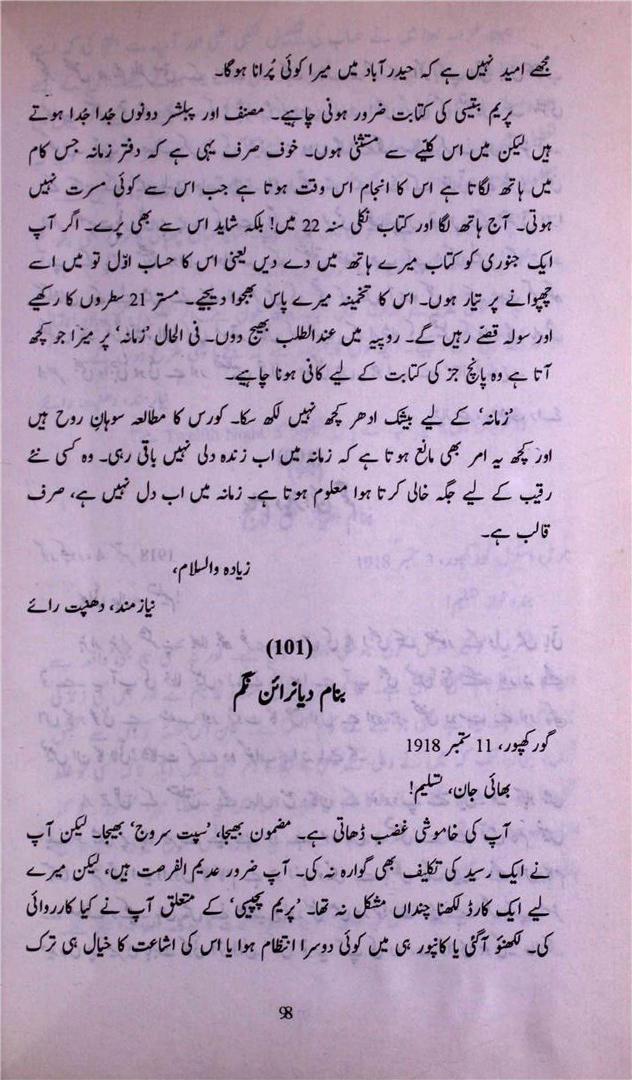 مجھے امید نہیں ہے کہ حیدرآباد میں میرا کوئی پُرانا ہوگا۔
پریم بتیسی کی کتابت ضرور ہونی چاہیے۔ مصنف اور پبلشر دونوں جُدا جُدا ہوتے
ہیں لیکن میں اس کلیے سے مستثنیٰ ہوں۔ خوف صرف یہی ہے کہ دفتر زمانہ جس کام
میں ہاتھ لگاتا ہے اس کا انجام اس وقت ہوتا ہے جب اس سے کوئی مسرت نہیں
ہوتی۔ آج ہاتھ لگا اور کتاب نکلی سنہ 22 میں! بلکہ شاید اس سے بھی پرے۔ اگر آپ
ایک جنوری کو کتاب میرے ہاتھ میں دے دیں یعنی اس کا حساب اوّل تو میں اسے
چھپوانے پر تیار ہوں۔ اس کا تخمینہ میرے پاس بھجوا دیجیے۔ مسٹر 21 سطروں کا رکھیے
اور سولہ قصّے رہیں گے۔ روپیہ میں عندالطلب بھیج دوں۔ فی الحال ’زمانہ‘ پر میرا جو کچھ
آتا ہے وہ پانچ جز کی کتابت کے لیے کافی ہونا چاہیے۔
’زمانہ‘ کے لیے بیشک ادھر کچھ نہیں لکھ سکا۔ کورس کا مطالعہ سوہانِ روح ہیں
اور کچھ یہ امر بھی مانع ہوتا ہے کہ زمانہ میں اب زندہ دلی نہیں باقی رہی۔ وہ کسی نئے
رقیب کے لیے جگہ خالی کرتا ہوا معلوم ہوتا ہے۔ زمانہ میں اب دل نہیں ہے، صرف
قالب ہے۔
زیادہ والسلام،
نیازمند، دھنپت رائے
(101)
بنام دیانرائن نگم
گورکھپور، 11 ستمبر 1918
بھائی جان، تسلیم!
آپ کی خاموشی غضب ڈھاتی ہے۔ مضمون بھیجا، ’سپت سروج‘ بھیجا۔ لیکن آپ
نے ایک رسید کی تکلیف بھی گوارہ نہ کی۔ آپ ضرور عدیم الفرصت ہیں، لیکن میرے
لیے ایک کارڈ لکھنا چنداں مشکل نہ تھا۔ ’پریم پچیسی‘ کے متعلق آپ نے کیا کارروائی
کی۔ لکھنؤ آگئی یا کانپور ہی میں کوئی دوسرا انتظام ہوا یا اس کی اشاعت کا خیال ہی ترک
98